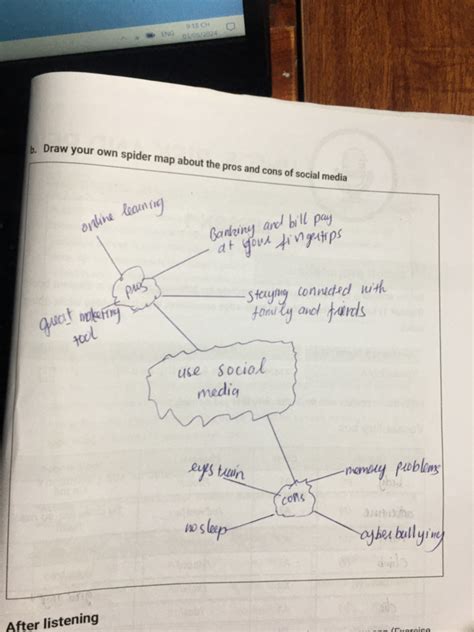 9:15 CH
ENG 03/05/2024
b. Draw your own spider map about the pros and cons of social media
online learning
Banking and bill pay
at your fingertips
pros
staying connected with
family and friends
great marketing
tool
use social
media
eyestrain
memory problems
cons
no sleep
cyberbullying
After listening